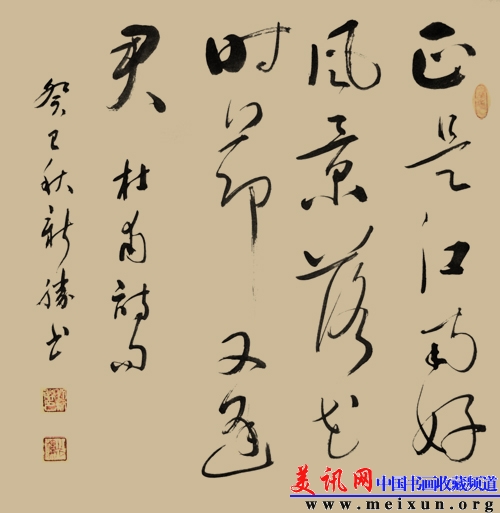 正是江南好
风景落花
时节又逢
君 杜甫诗句
癸巳秋新胜书
美讯网 中国书画收藏频道
www.meixun.org